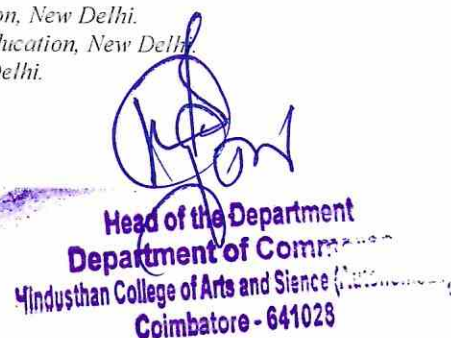 on, New Delhi.
ducation, New Delhi.
Delhi.
Head of the Department
Department of
Hindusthan College of Arts and Sience
Coimbatore - 641028